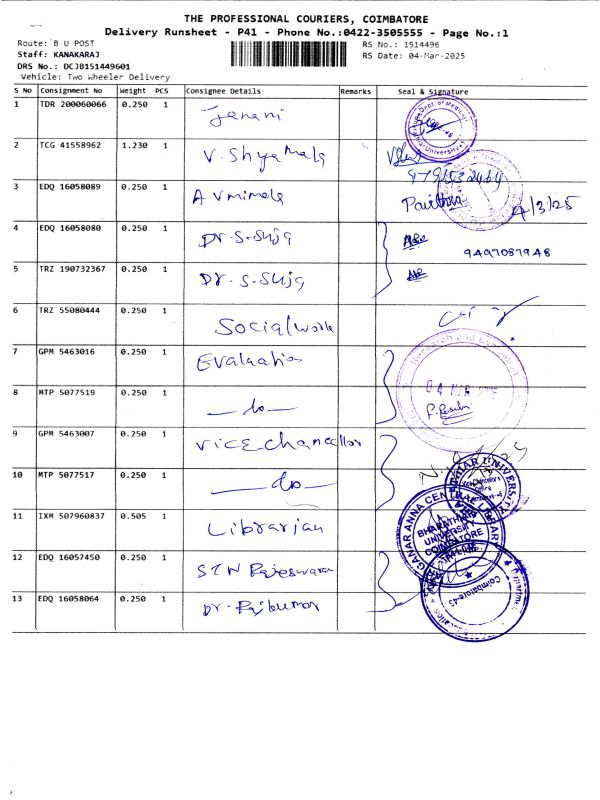 THE PROFESSIONAL COURIERS, COIMBATORE
Delivery Runsheet - P41 - Phone No.:0422-3505555 - Page No.:1
Route: B U POST
RS No.: 1514496
Staff: KANAKARAJ
RS Date: 04-Mar-2025
DRS No.: DCJB151449601
Vehicle: Two Wheeler Delivery
S No Consignment No Weight PCS Consignee Details Remarks Seal & Signature
1 TDR 200060066 0.250 1 Janani
2 TCG 41558962 1.230 1 V. Shyamala
3 EDQ 16058089 0.250 1 A Vmimala Pavithra 4/3/25
4 EDQ 16058080 0.250 1 Dr. S. Suja 9497087948
5 TRZ 190732367 0.250 1 Dr. S. Suja
6 TRZ 55080444 0.250 1 Social work
7 GPM 5463016 0.250 1 Evaluation
8 MTP 5077519 0.250 1 —do—
9 GPM 5463007 0.250 1 Vice chancellor
10 MTP 5077517 0.250 1 —do—
11 IXM 507960837 0.505 1 Librarian
BHARATHIAR
UNIVERSITY
COIMBATORE
12 EDQ 16057450 0.250 1 Rajeswaran
13 EDQ 16058064 0.250 1 Dr. Rajkumar